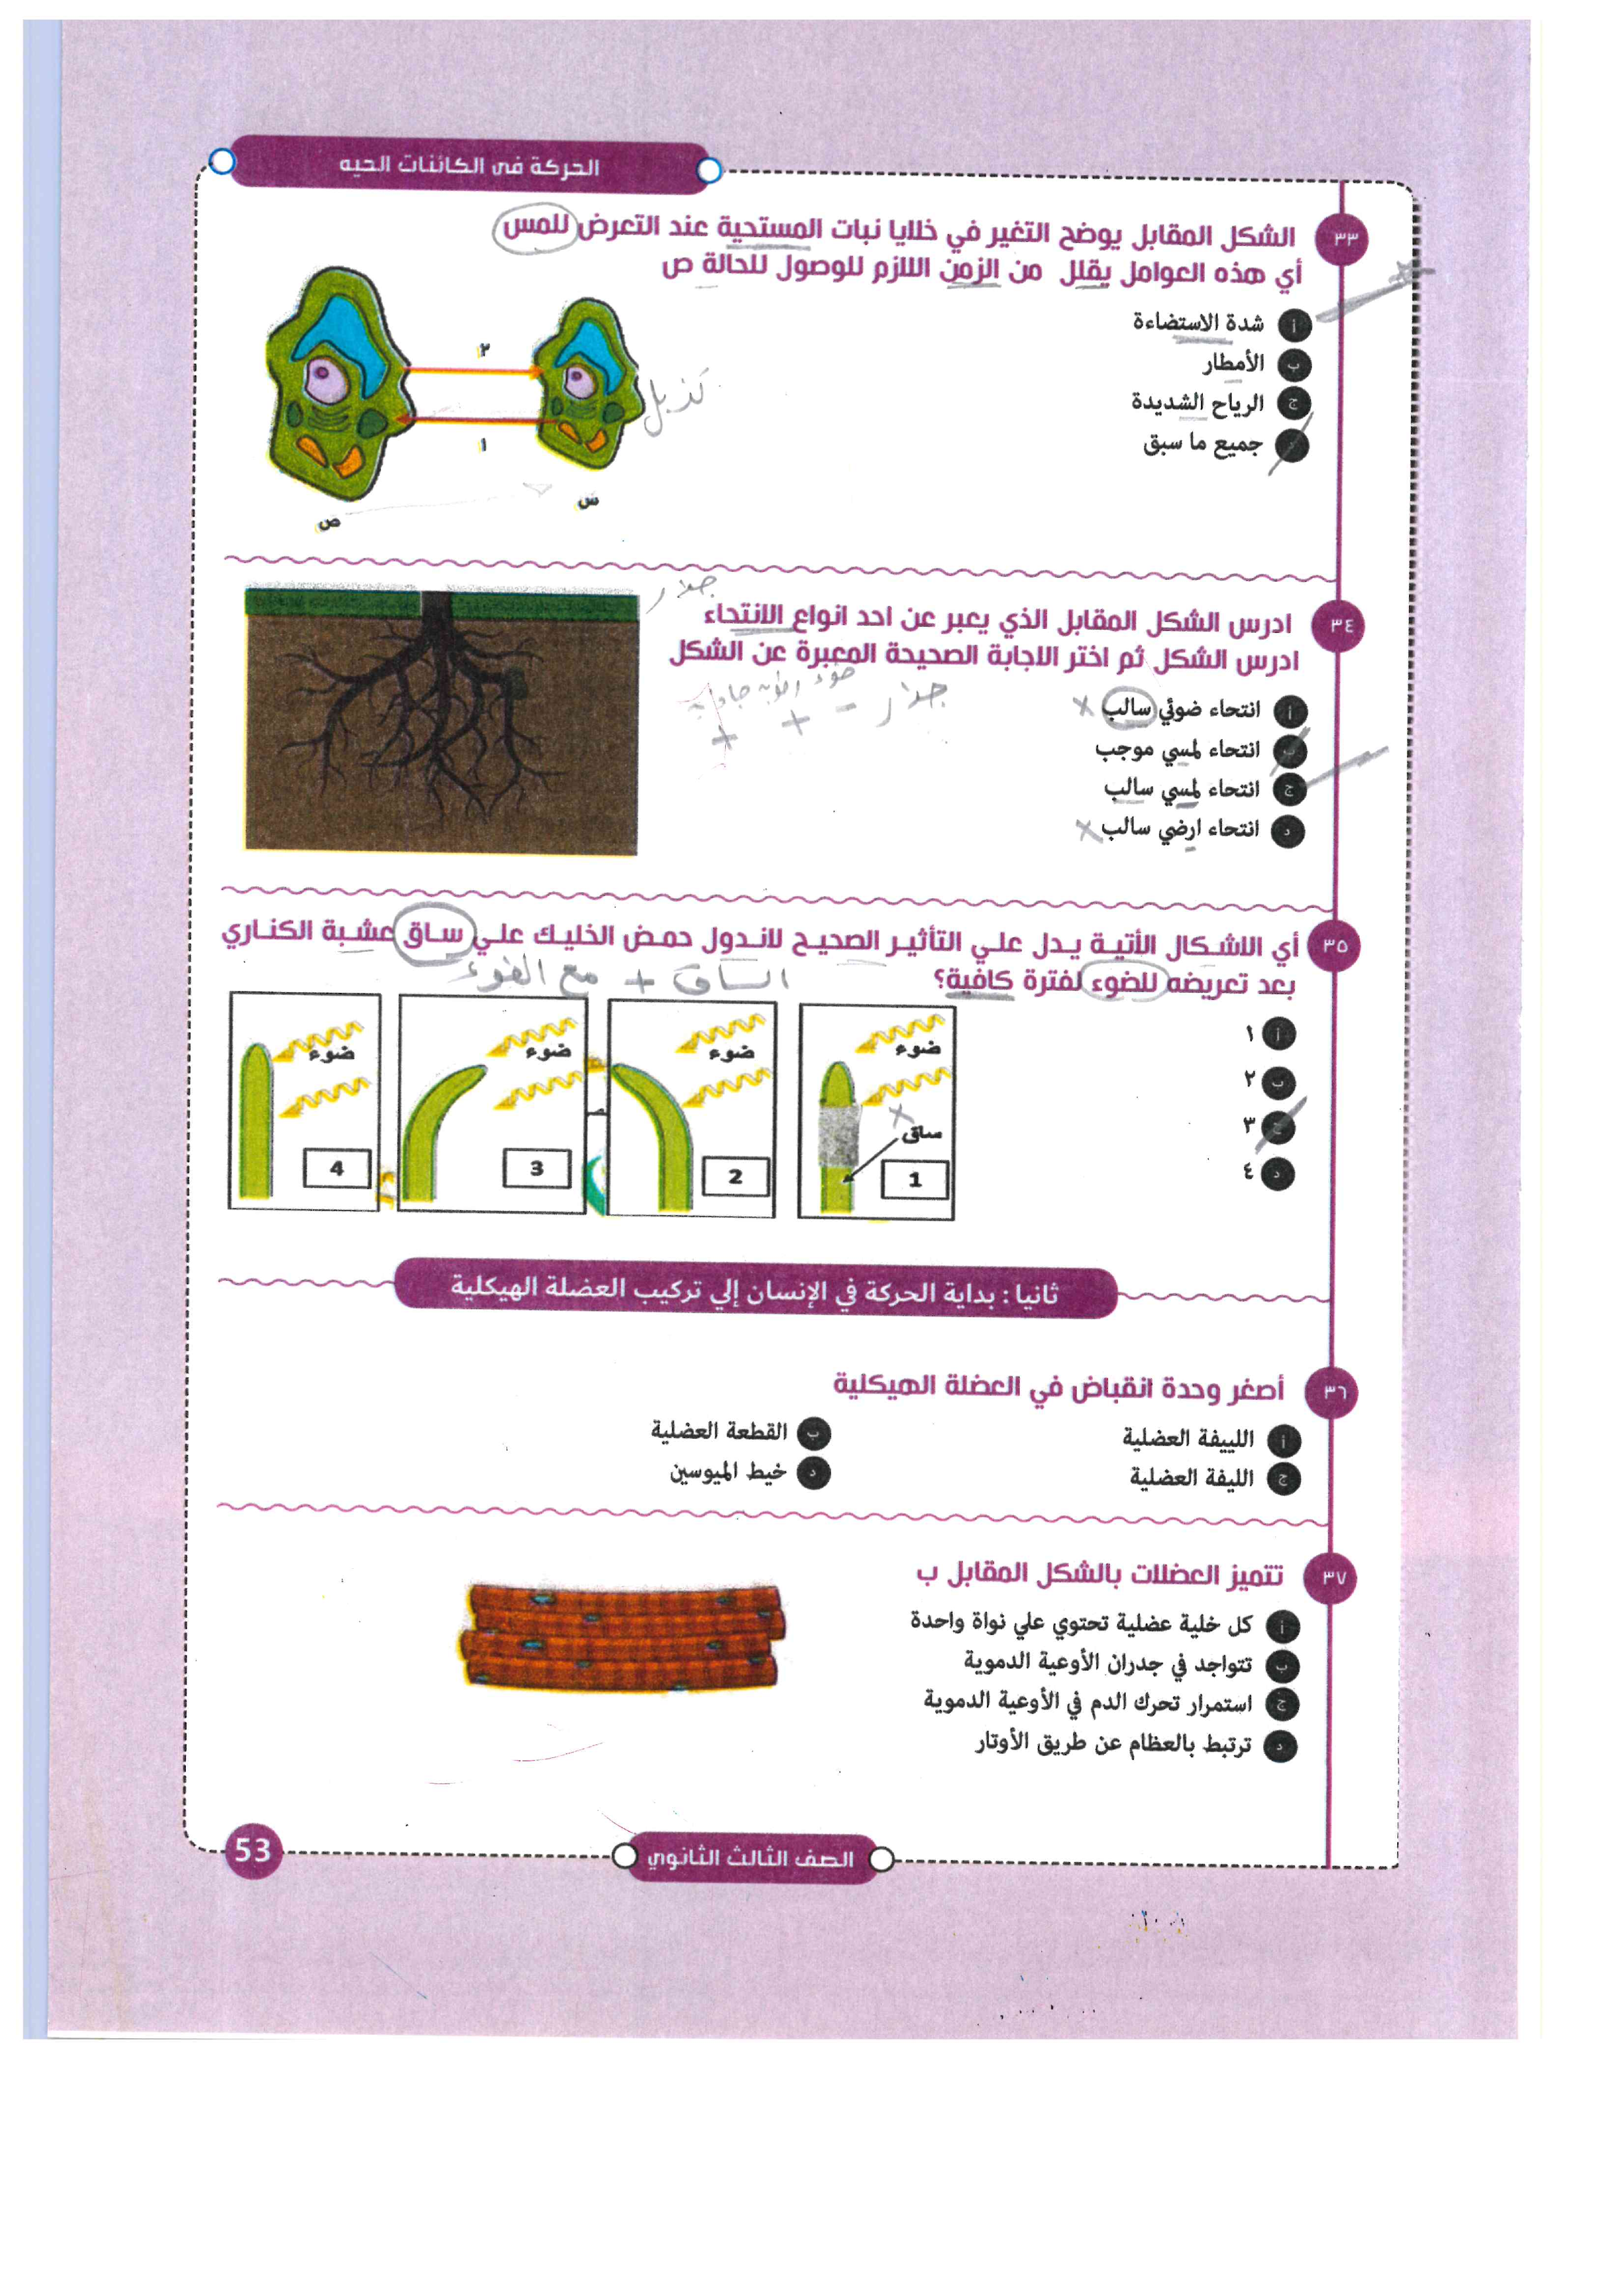 الحركة في الكائنات الحيه
٣٣ الشكل المقابل يوضح التغير في خلايا نبات المستحية عند التعرض للمس
أي هذه العوامل يقلل من الزمن اللازم للوصول للحالة ص
أ شدة الاستضاءة
ب الأمطار
ج الرياح الشديدة
د جميع ما سبق
٢
١
س
ص
جذر
٣٤ ادرس الشكل المقابل الذي يعبر عن احد انواع الانتحاء
ادرس الشكل ثم اختر الاجابة الصحيحة المعبرة عن الشكل
جذر - + +
أ انتحاء ضوئي سالب
ب انتحاء لمسي موجب
ج انتحاء لمسي سالب
د انتحاء ارضي سالب
٣٥ أي الاشكال الأتية يدل علي التأثير الصحيح لاندول حمض الخليك علي ساق عشبة الكناري
بعد تعريضه للضوء لفترة كافية؟
الساق + مع الضوء
أ ١
ب ٢
ج ٣
د ٤
ضوء
ساق
1
ضوء
2
ضوء
3
ضوء
4
ثانيا : بداية الحركة في الإنسان إلي تركيب العضلة الهيكلية
٣٦ أصغر وحدة انقباض في العضلة الهيكلية
أ اللييفة العضلية
ب القطعة العضلية
ج الليفة العضلية
د خيط الميوسين
٣٧ تتميز العضلات بالشكل المقابل ب
أ كل خلية عضلية تحتوي علي نواة واحدة
ب تتواجد في جدران الأوعية الدموية
ج استمرار تحرك الدم في الأوعية الدموية
د ترتبط بالعظام عن طريق الأوتار
الصف الثالث الثانوي
53